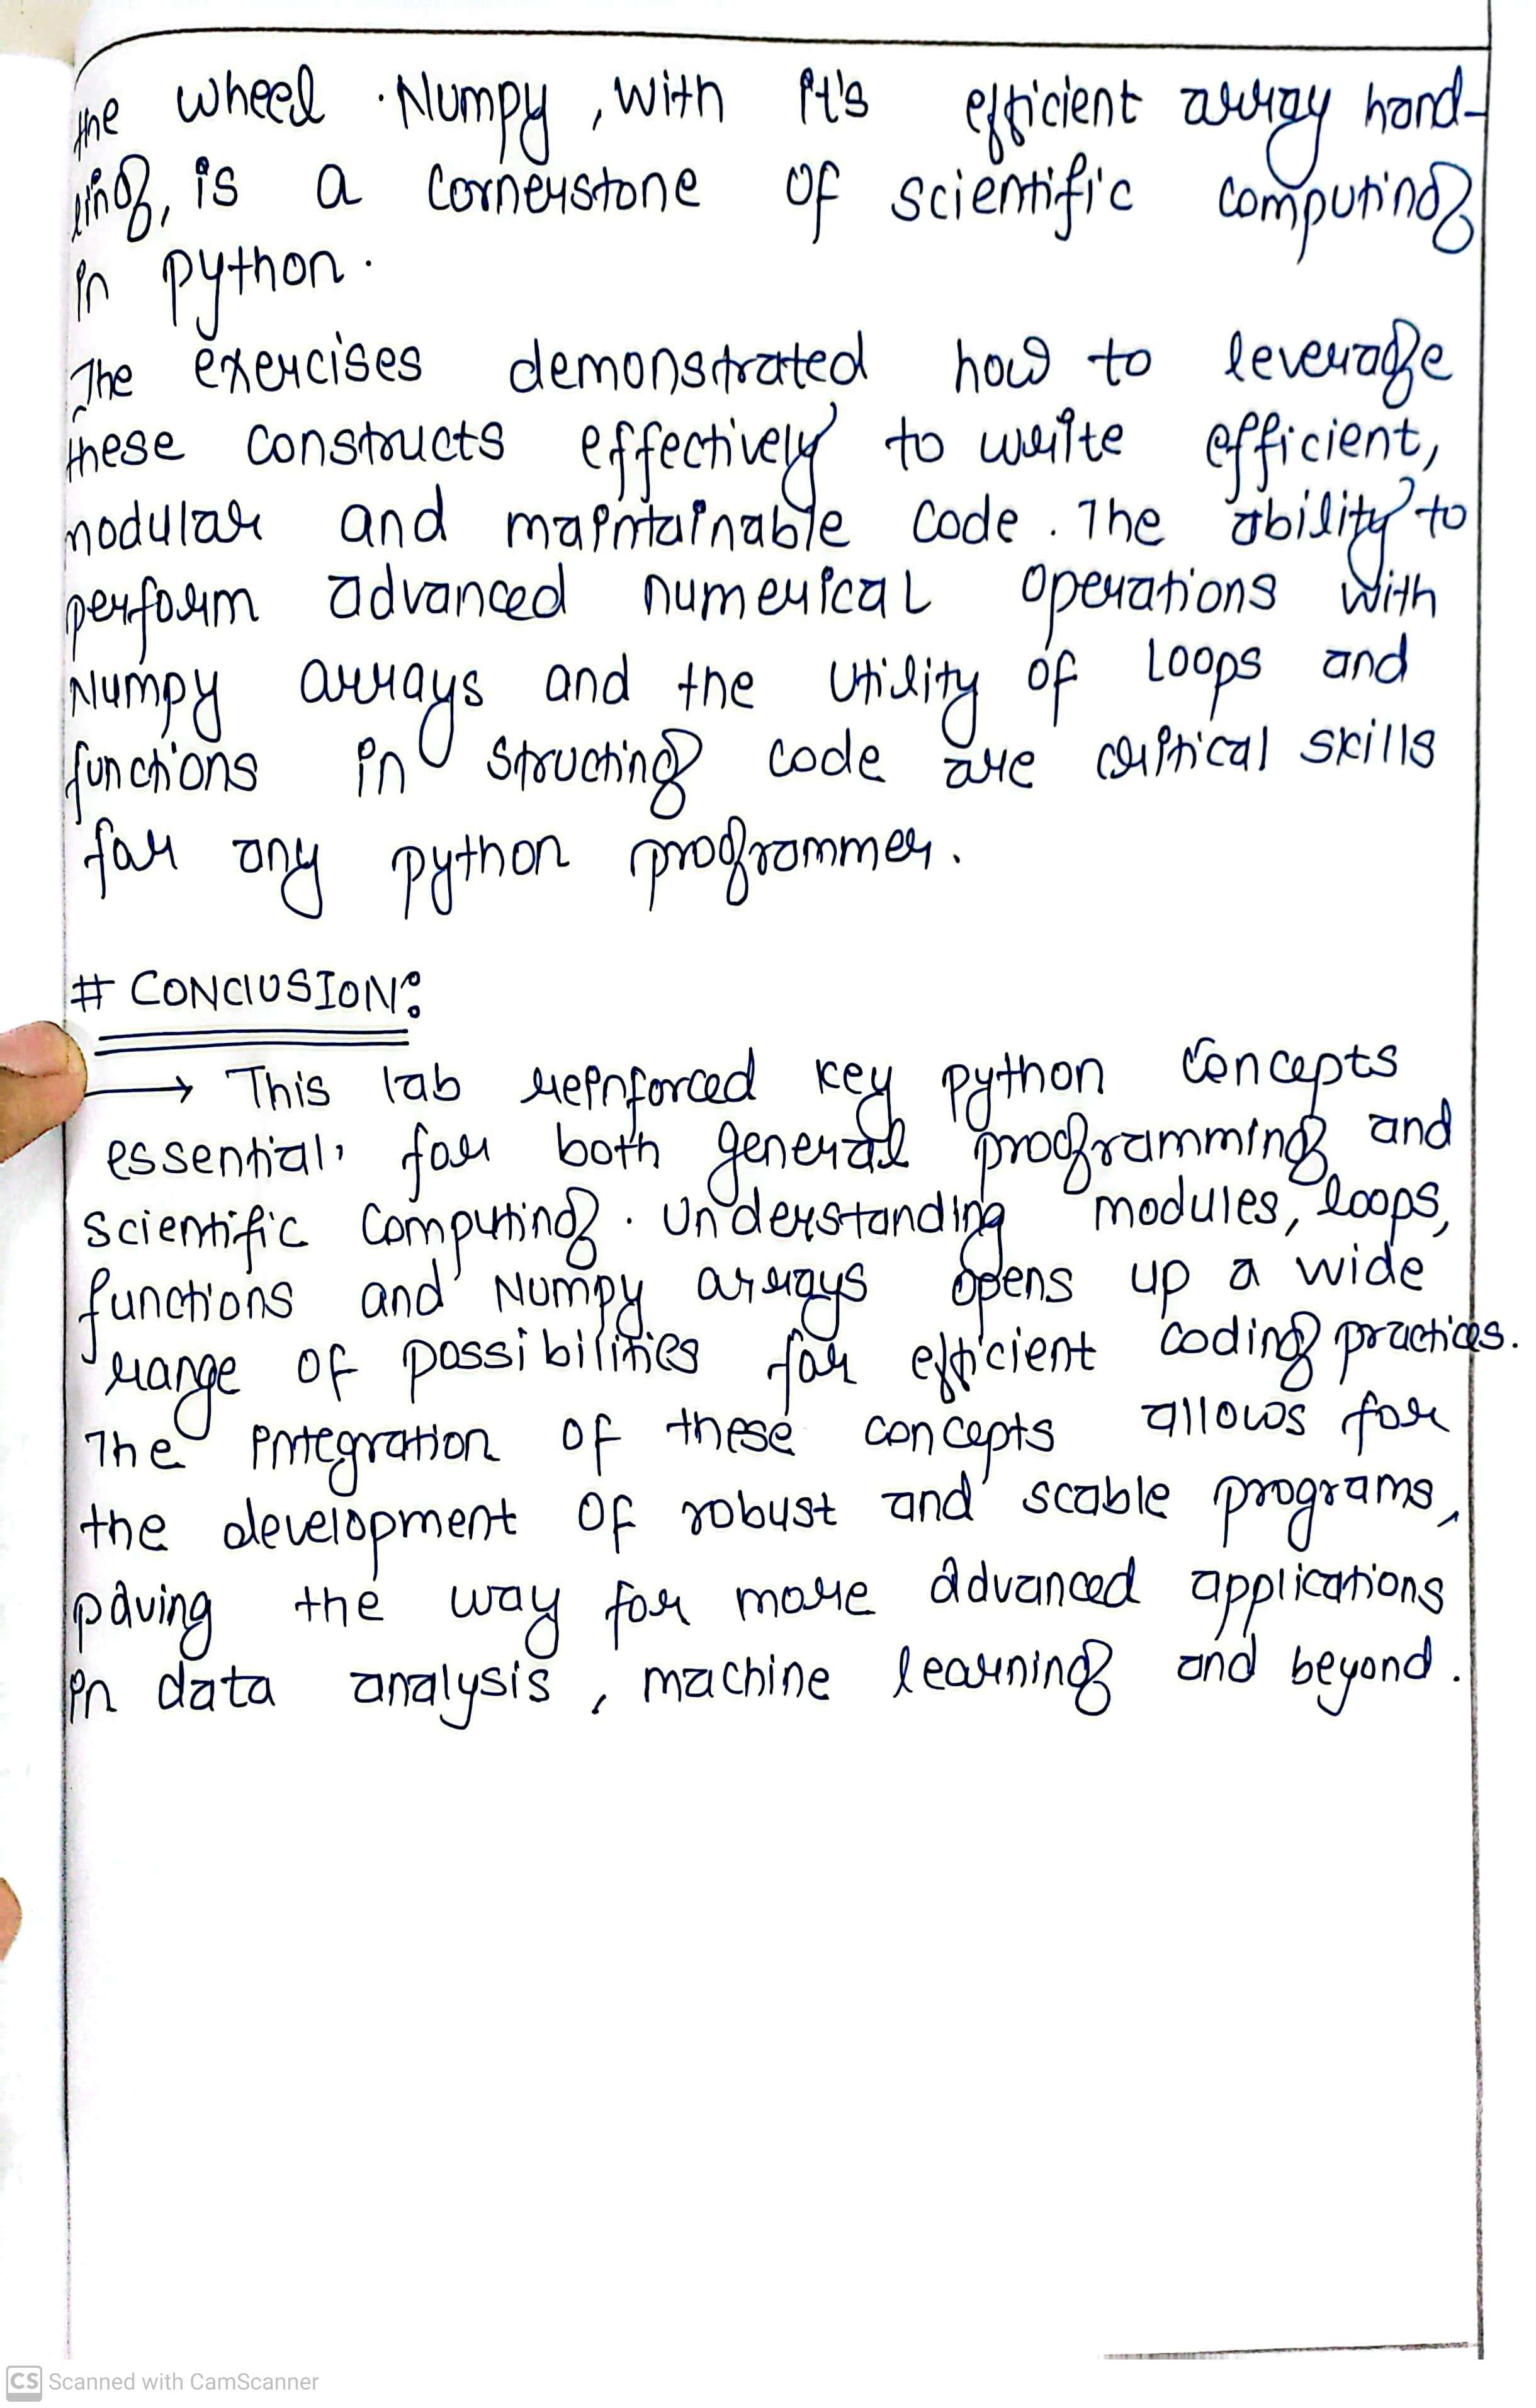 the wheel . Numpy , with it's efficient array hand-
ling, is a cornerstone of scientific computing
in python .
The exercises demonstrated how to leverage
these constructs effectively to write efficient,
modular and maintainable code . The ability to
perform advanced numerical operations with
Numpy arrays and the utility of Loops and
functions in structing code are critical skills
for any python programmer .
# CONCLUSION:
→ This lab reinforced key python concepts
essential, for both general programming and
scientific computing . Understanding modules, loops,
functions and Numpy arrays opens up a wide
range of possibilities for efficient coding practices.
The integration of these concepts allows for
the development of robust and scable programs,
paving the way for more advanced applications
in data analysis , machine learning and beyond .
CS Scanned with CamScanner